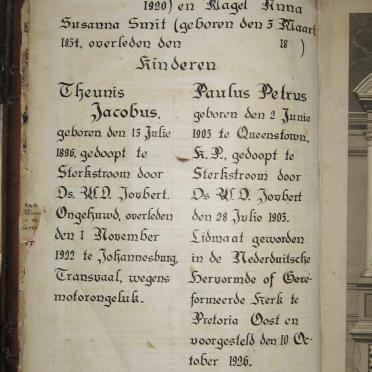 1920) en Magel Anna
Susanna Smit (geboren den 3 Maart
1854, overleden den 18 )
Kinderen
Theunis
Jacobus.
geboren den 15 Julie
1896, gedoopt te
Sterkstroom door
Ds. W.D. Joubert.
Ongehuwd, overleden
den 1 November
1922 te Johannesburg,
Transvaal, wegens
motorongeluk.
Paulus Petrus
geboren den 2 Junie
1905 te Queenstown,
K. P., gedoopt te
Sterkstroom door
Ds W. D. Joubert
den 28 Julie 1905.
Lidmaat geworden
in de Nederduitsche
Hervormde of Gere-
formeerde Kerk te
Pretoria Oost en
voorgesteld den 10 Oc-
tober 1926.